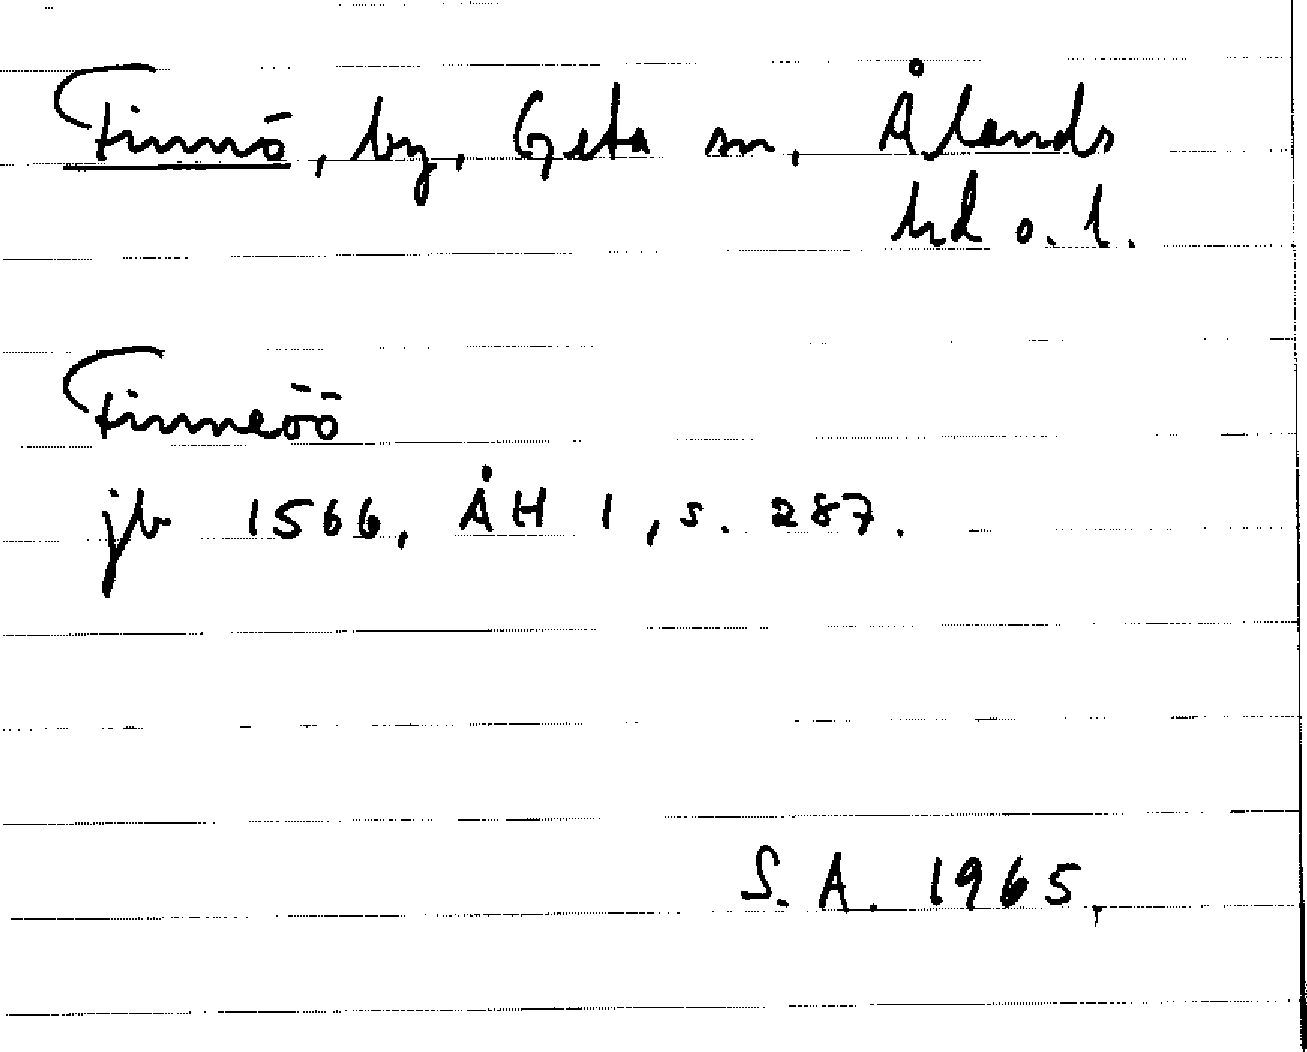 Finnö, by, Geta sn, Ålands
hd o. l.
Finneöö
jb 1566, ÅH 1, s. 287.
S. A. 1965.